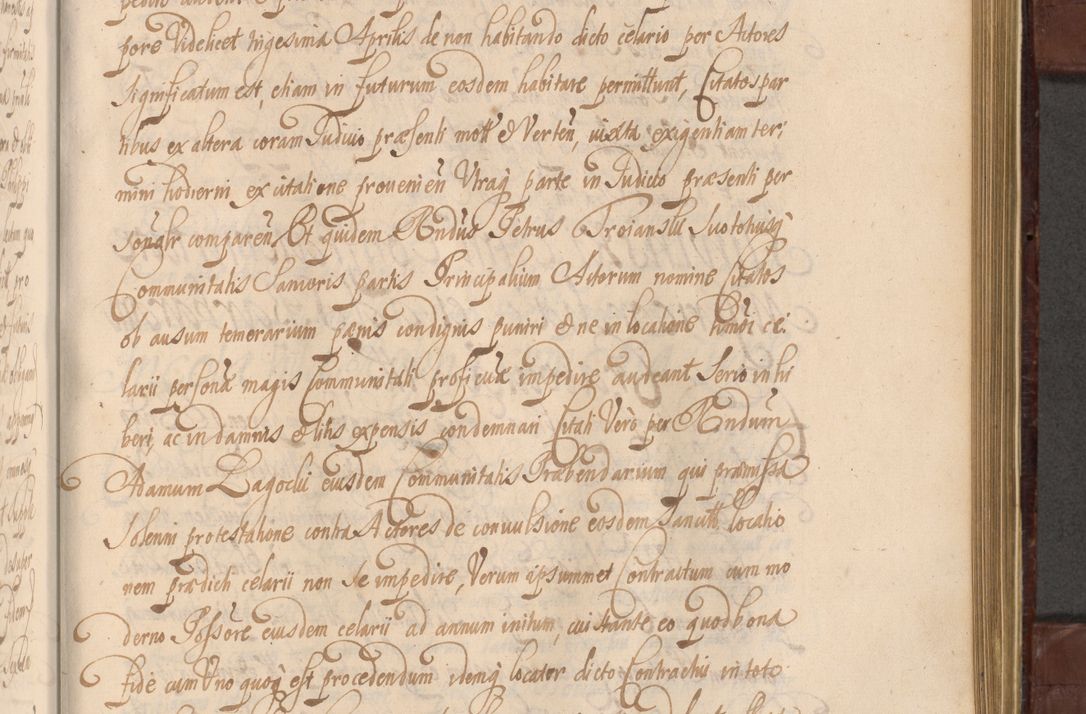 pore Videlicet trigesima Aprilis de non habitando dicto celario per Actores
significatum est, etiam in futurum eosdem habitare permittunt, Citatos par
tibus ex altera coram Judicio præsenti mott & Verteñ, iuxta exigentiam ter:
mini hodierni ex citatione provenieñ Utraq parte in Judicio præsenti per
sonalr compareñ Et quidem Rndus Petrus Troianski suo totiusq
Communitatis Sanioris partis Principalium Actorum nomine Citatos
ob ausum temerarium pænis condignis puniri & ne in locatione hmõi ce:
larii personæ magis Communitati proficuæ impedire audeant serio inhi
beri, ac in damnis & litis expensis condemnari Citati Verò per Rndum
Adamum Lagocki eiusdem Communitatis Præbendarium qui præmissa
solenni protestatione contra Actores de convulsione eosdem locatio
nem prædicti celarii non se impedire, Verum ipsummet Contractum cum mo
derno Possore eiusdem celarii ad annum initum, cui stante eo quod bona
fide cum Uno quoq est procedendum idemq locator dicto Contractui in toto